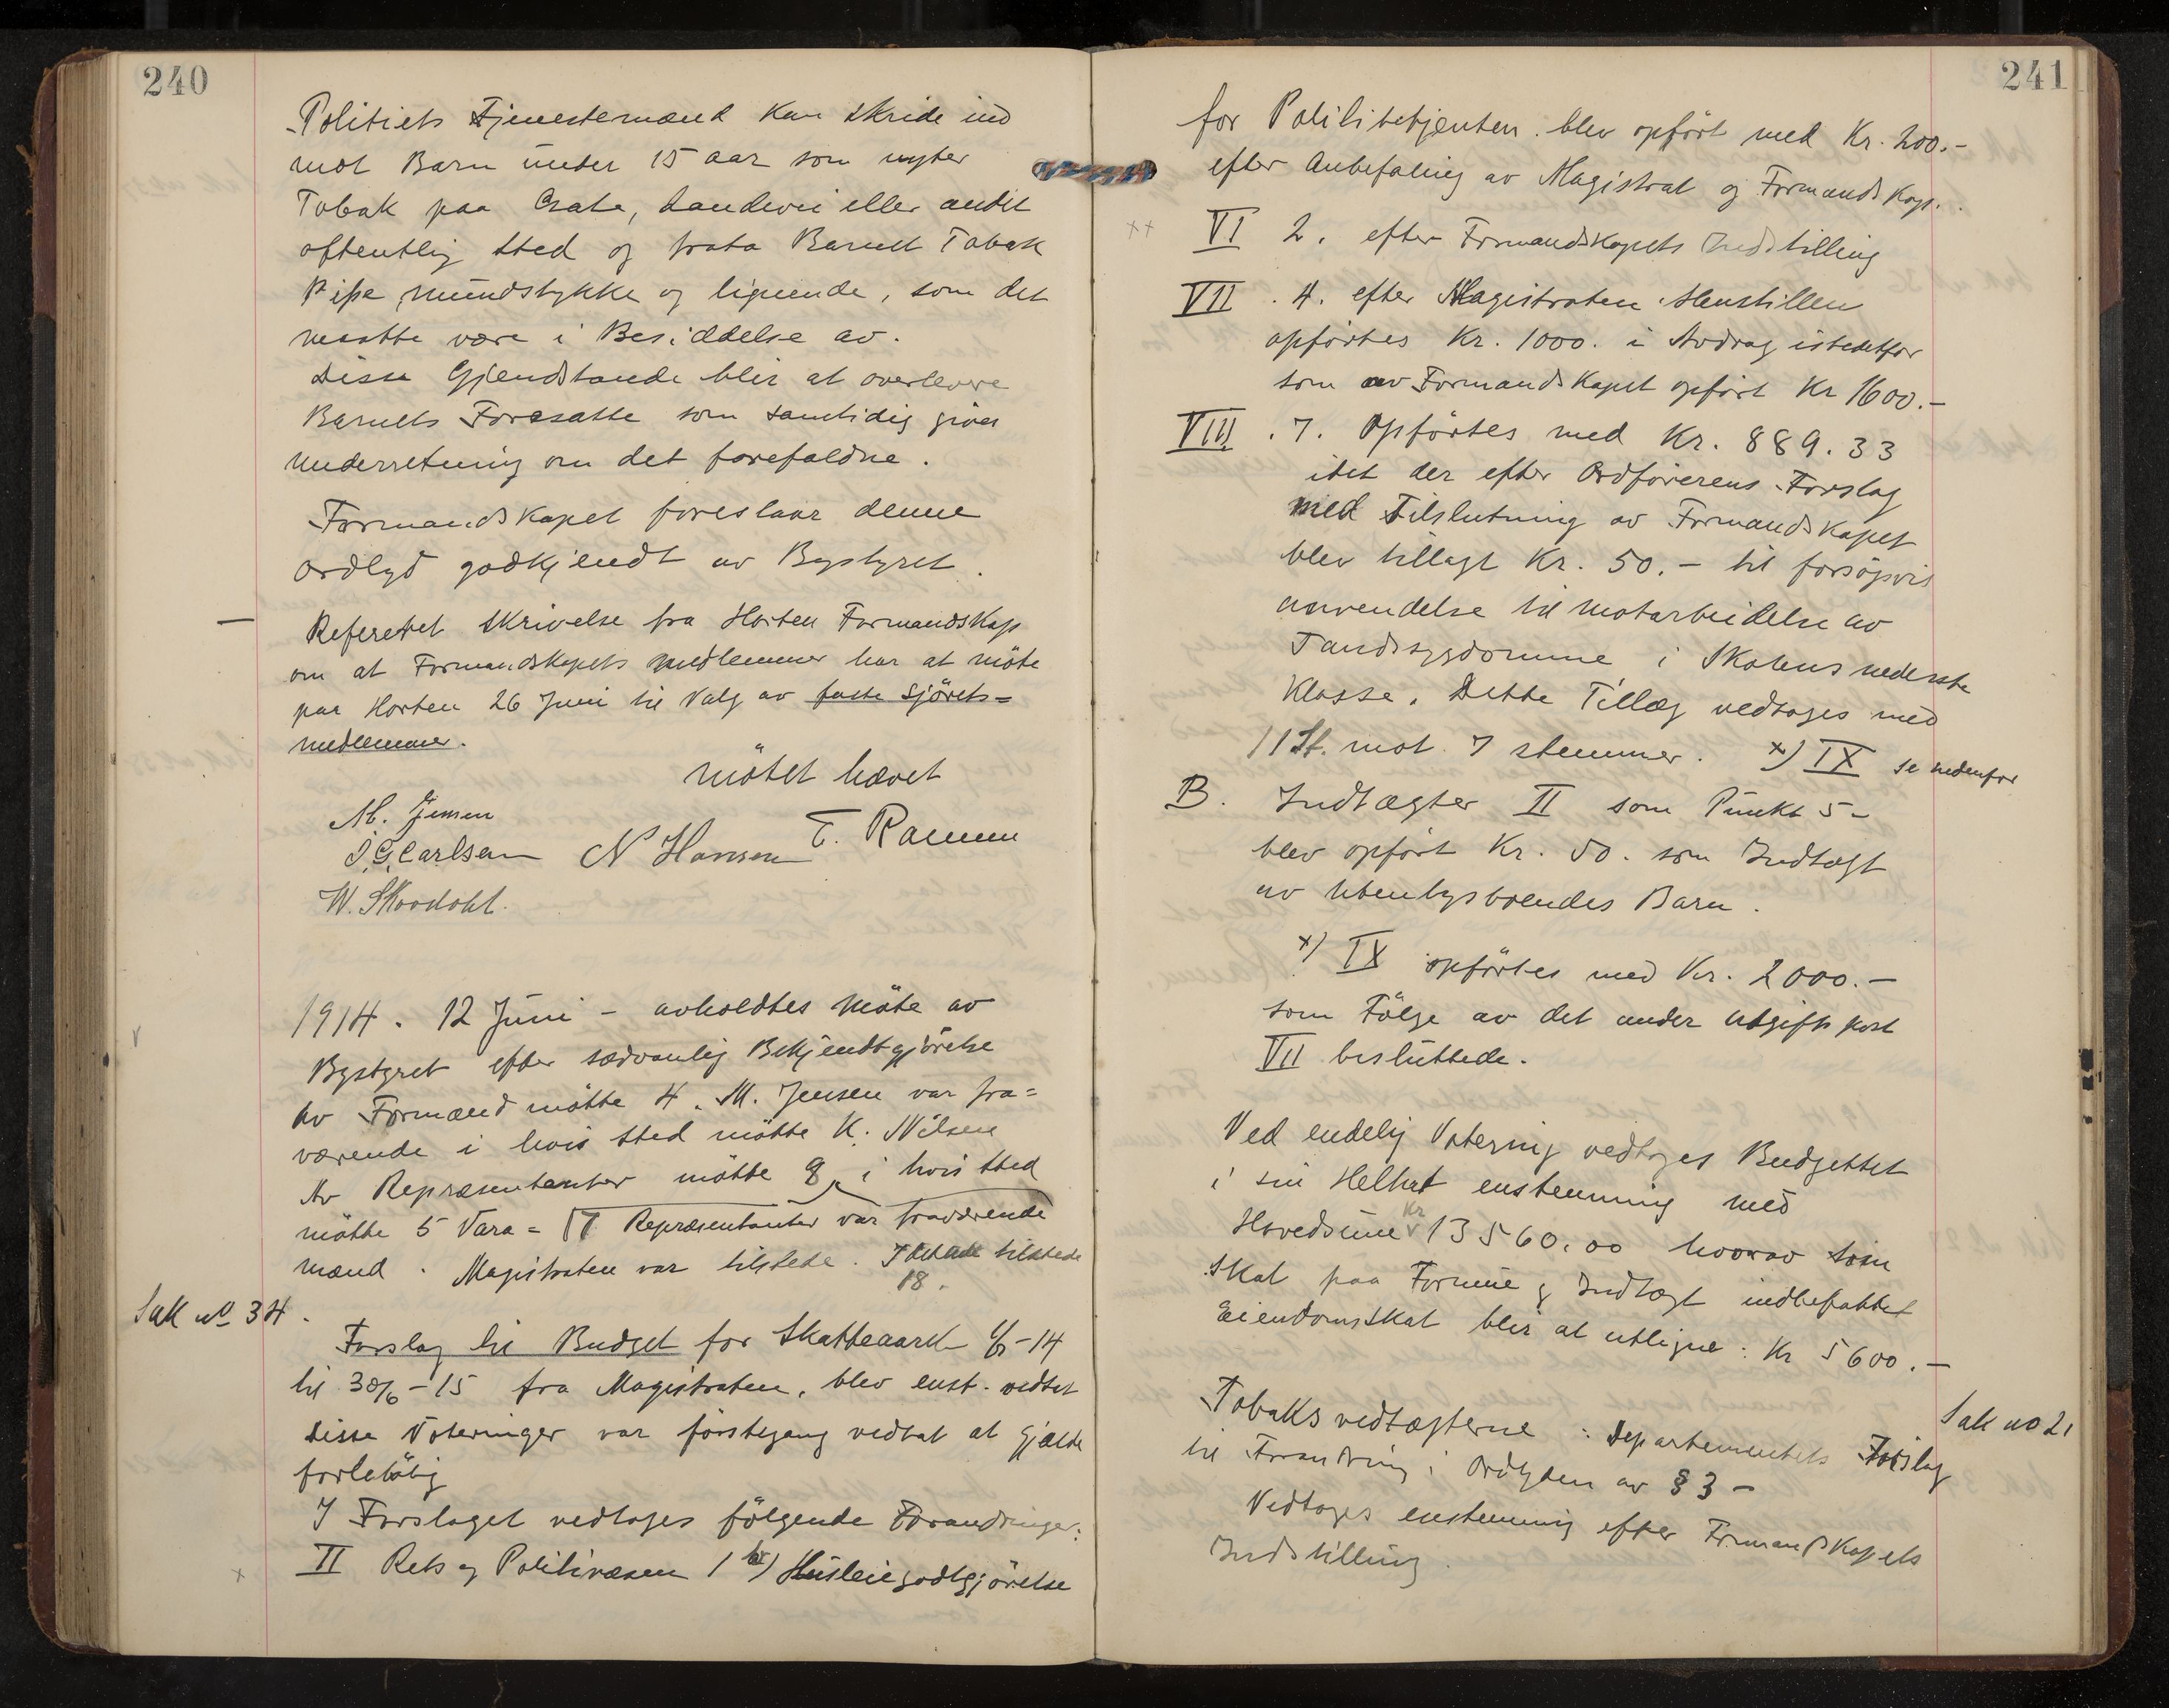 240
Politiets Tjenestemænd kan skride ind
mot Barn under 15 aar som nyter
Tobak paa Gate, Landevei eller andet
offentlig Sted og frata Barnet Tobak
Pipe, Mundstykke og lignende, som det
maatte være i Besiddelse av.
Disse Gjendstande blir at overlevere
Barnets Foresatte som samtidig gives
Underretning om det forefaldne.
Formandskapet foreslaar denne
Ordlyd godkjendt av Bystyret.
— Refereret Skrivelse fra Horten Formandskap
om at Formandskapets Medlemmer har at möte
paa Horten 26 Juni til Valg av faste Sjörets=
medlemmer.
Mötet hævet
M. Jensen
J. G. Carlsen N Hansen T. Ramm
W. Skovdahl.
1914. 12 Juni - avholdtes Möte av
Bystyret efter sædvanlig Bekjendtgjörelse
Av Formænd mötte 4. M. Jensen var fra=
værende i hvis Sted mötte K. Nilsen
Av Repræsentanter mötte 8, i hvis Sted
mötte 5 Vara= 7 Repræsentanter var fraværende
mænd. Magistraten var tilstede. Ialt tilstede
18.
Sak no 34.
Forslag til Budget for Skatteaaret 1/7-14
til 30/6-15 fra Magistraten, blev enst. vedtat
Disse Voteringer var förstegang vedtat at gjælde
forelöbig
I Forslaget vedtoges fölgende Forandringer:
x II Rets og Politivæsen 1 b) Husleiegodtgjörelse
241
for Politibetjenten blev opfört med Kr. 200.-
efter Anbefaling av Magistrat og Formandskap.
xx VI 2. efter Formandskapets Indstilling
VII . 4. efter Magistraten Henstillen
opförtes Kr. 1000. i Avdrag istedetfor
som av Formandskapet opfört Kr 1600.-
VIII . 7. Opförtes med Kr. 889.33
idet der efter Ordförerens Forslag
med Tilslutning av Formandskapet
blev tillagt Kr. 50.- til forsögsvis
anvendelse til Motarbeidelse av
Tandsygdomme i Skolens nederste
Klasse. Dette Tillæg vedtoges med
11 St. mot 7 stemmer. x) IX se nedenfor
B. Indtægter II som Punkt 5-
blev opfört Kr. 50. som Indtægt
av Utenbysboendes Barn.
x) IX opförtes med Kr. 2000.-
som Fölge av det under Utgifts post
VII besluttede.
Ved endelig Votering vedtoges Budgettet
i sin Helhet enstemmig med
Hovedsum Kr 13560.00 hvorav som
Skat paa Formue og Indtægt indbefattet
Eiendomsskat blir at utligne: Kr 5600.-
Sak no 21
Tobaksvedtægterne: Departementets Forslag
til Forandring i Ordlyden av § 3 -
Vedtoges enstemmig efter Formandskapets
Indstilling.